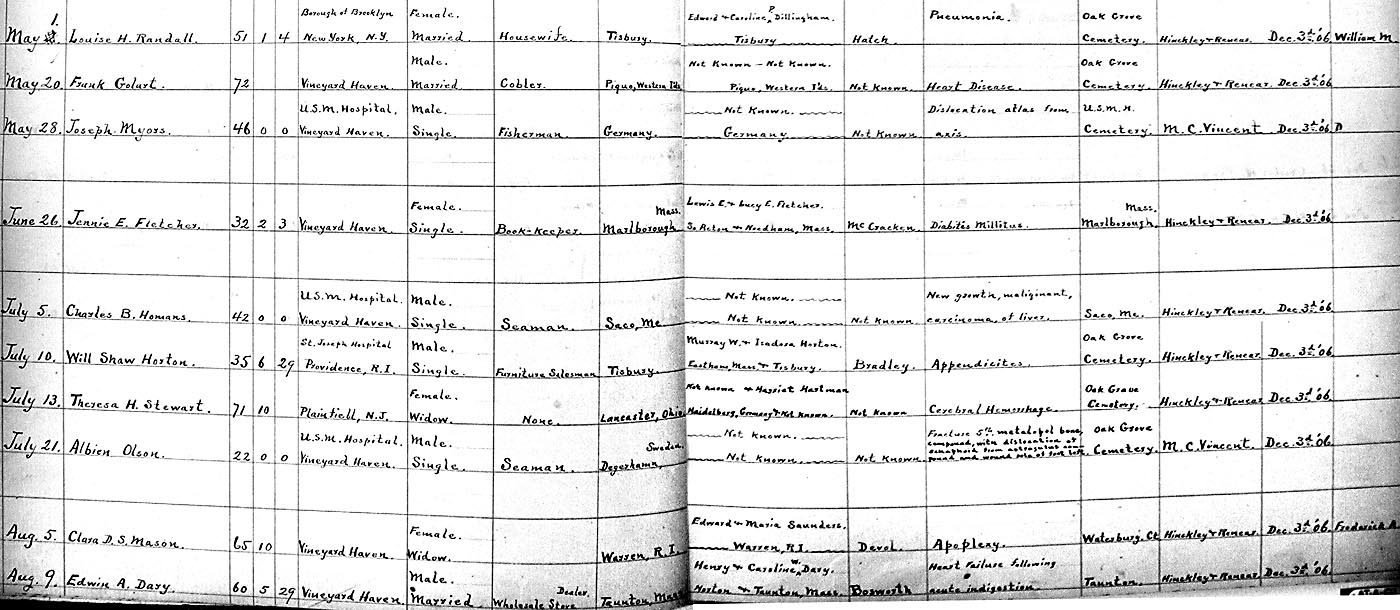 Borough of Brooklyn Female. Edward & Caroline P. Dillingham. Pneumonia. Oak Grove
May 1. Louise H. Randall. 51 1 4 New York, N.Y. Married Housewife Tisbury. Tisbury Hatch Cemetery. Hinckley & Renear. Dec. 3rd '06. William M
Male. Not Known - Not Known. Oak Grove
May 20. Frank Golart. 72 Vineyard Haven. Married Cobler. Piquo, Western I'ds Piquo, Western I'ds. Not Known. Heart Disease. Cemetery. Hinckley & Renear Dec. 3rd '06.
U.S.M. Hospital, Male. Not Known. Dislocation atlas from U.S.M.H.
May 28. Joseph Myors. 46 0 0 Vineyard Haven. Single. Fisherman Germany. Germany Not Known axis. Cemetery. M. C. Vincent Dec. 3rd '06. D
Female. Mass. Lewis E. & Lucy E. Fletcher. Mass.
June 26. Jennie E. Fletcher. 32 2 3 Vineyard Haven. Single. Book-keeper. Marlborough So Acton & Needham, Mass. McCracken Diabites Millitus. Marlborough, Hinckley & Renear. Dec. 3rd '06
U.S.M. Hospital. Male. Not Known. New growth, maliginant,
July 5. Charles B. Homans. 42 0 0 Vineyard Haven. Single. Seaman. Saco, Me. Not Known. Not Known carcinoma, of liver. Saco, Me. Hinckley & Renear. Dec. 3rd '06
St. Joseph Hospital Male. Murray W. & Isadora Horton. Oak Grove
July 10. Will Shaw Horton. 35 6 29 Providence, R.I. Single. Furniture Salesman Tisbury. Eastham, Mass & Tisbury. Bradley. Appendicites. Cemetery. Hinckley & Renear. Dec. 3rd '06.
Female. Not Known & Harriet Hartman Oak Grave
July 13. Theresa H. Stewart. 71 10 Plainfiell, N.J. Widow. None. Lancaster, Ohio Heidelberg, Germany & Not Known. Not Known Cerebral Hemorrhage. Cemetery. Hinckley & Renear Dec. 3rd '06.
U.S.M. Hospital. Male. Sweden Not Known. Fracture 5th metatopol bone, compound, with dislocation of Oak Grove
July 21. Albien Olson. 22 0 0 Vineyard Haven. Single. Seaman Degerhamn, Not Known. Not Known scaphoid from and wound sole of foot left Cemetery. M. C. Vincent. Dec. 3rd '06
Female. Edward & Maria Saunders.
Aug. 5. Clara D. S. Mason. 65 10 Vineyard Haven. Widow. Warren, R.I. Warren, R.I. Devol. Apoplexy. Waterbury, Ct Hinckley & Renear. Dec. 3rd '06, Frederick A
Male. Dealer. Henry & Caroline W. Dary. Heart Failure following
Aug. 9. Edwin A. Dary. 60 5 29 Vineyard Haven. Married Wholesale Stove Taunton, Mass Norton & Taunton, Mass. Bosworth acute indigestion. Taunton. Hinckley & Renear Dec. 3rd '06.